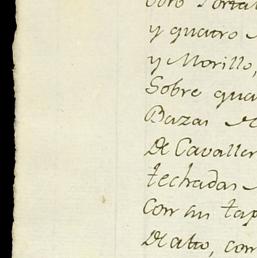 y quatro
y Morillo,
Sobre qua
Bazas de
de Cavaller
techadas
con su tap
de alto, con